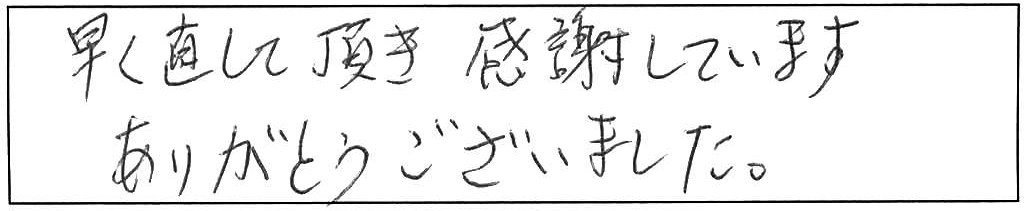 早く直して頂き 感謝しています
ありがとうございました。